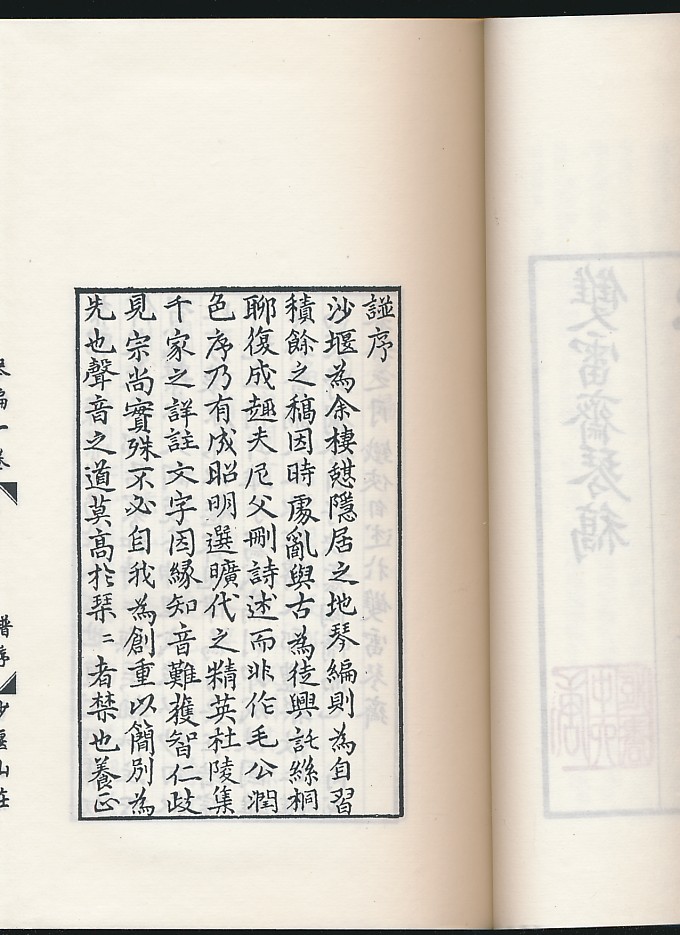 諡序
沙堰為余棲憇隱居之地琴編則為自習
積餘之稿因時處亂與古為徒興託絲桐
聊復成趣夫尼父刪詩述而非作毛公潤
色序乃有成昭明選曠代之精英杜陵集
千家之詳註文字因緣知音難獲智仁歧
見宗尚實殊不必自我為創重以簡別為
先也聲音之道莫高於琹〻者禁也養正